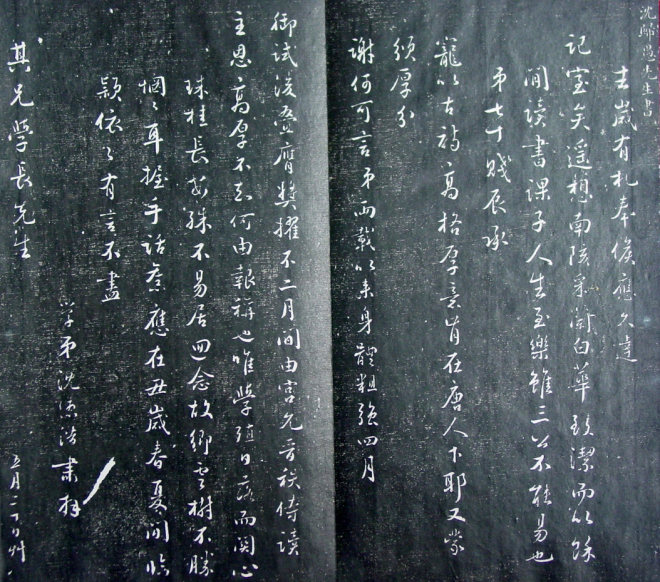 沈歸愚先生書
去歲有札奉候應久達
記室矣遥想南陔采蘭白華致潔而以餘
閒讀書課子人生至樂雖三公不能易也
弟七十賤辰承
寵以古詩高格厚意肯在唐人下耶又蒙
頒厚分
謝何可言弟兩載以来身體粗強四月
御試後疊膺獎擢不二月間由宫允晋秩侍讀
主恩高厚不知何由報稱也唯學殖日落而關心
珠桂長安殊不易居回念故鄉雲樹不勝
惘惘耳握手話舊應在丑歲春夏間臨
穎依依有言不盡
其兄學長先生
学弟沈德潜肅拜
五月二十日艸